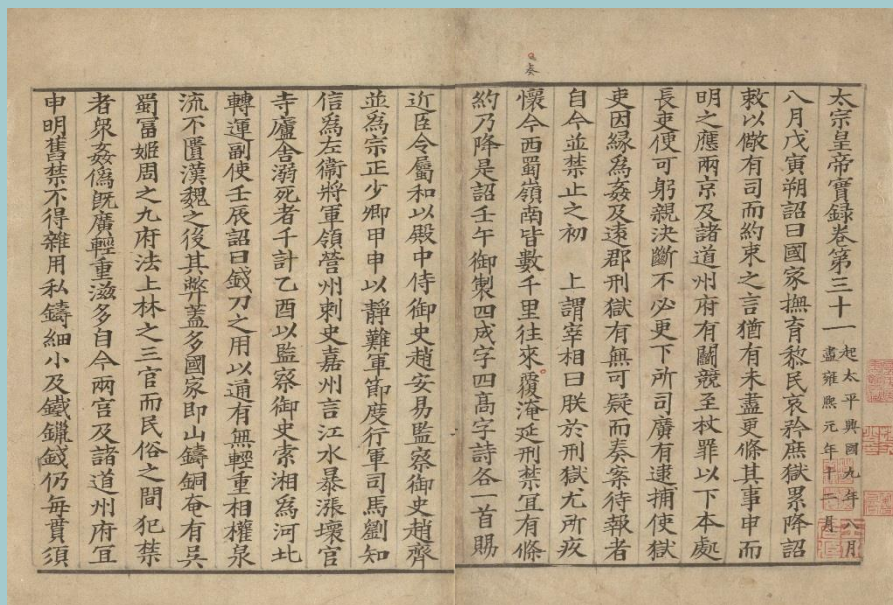 太宗皇帝實錄卷第三十一
起太平興國九年八月
盡雍熙元年十二月
八月戊寅朔詔曰國家撫育黎民哀矜庶獄累降詔
敕以儆有司而約束之言猶有未盡更條其事申而
明之應兩京及諸道州府有鬭競至杖罪以下本處
長吏便可躬親決斷不必更下所司廣有逮捕使獄
吏因緣爲姦及遠郡刑獄有無可疑而奏案待報者
自今並禁止之初　上謂宰相曰朕於刑獄尤所疚
奏
懷今西蜀嶺南皆數千里往來覆淹延刑禁宜有條
約乃降是詔壬午御製四成字四髙字詩各一首賜
近臣令屬和以殿中侍御史趙安易監察御史趙齊
並爲宗正少卿甲申以靜難軍節度行軍司馬劉知
信爲左衛將軍領營州刺史嘉州言江水暴漲壞官
寺廬舍溺死者千計乙酉以監察御史索湘爲河北
轉運副使壬辰詔曰錢刀之用以通有無輕重相權泉
流不匱漢魏之後其弊蓋多國家即山鑄銅奄有吳
蜀冨姬周之九府法上林之三官而民俗之間犯禁
者衆姦僞旣廣輕重滋多自今兩官及諸道州府冝
申明舊禁不得雜用私鑄細小及鐵鑞錢仍每貫須